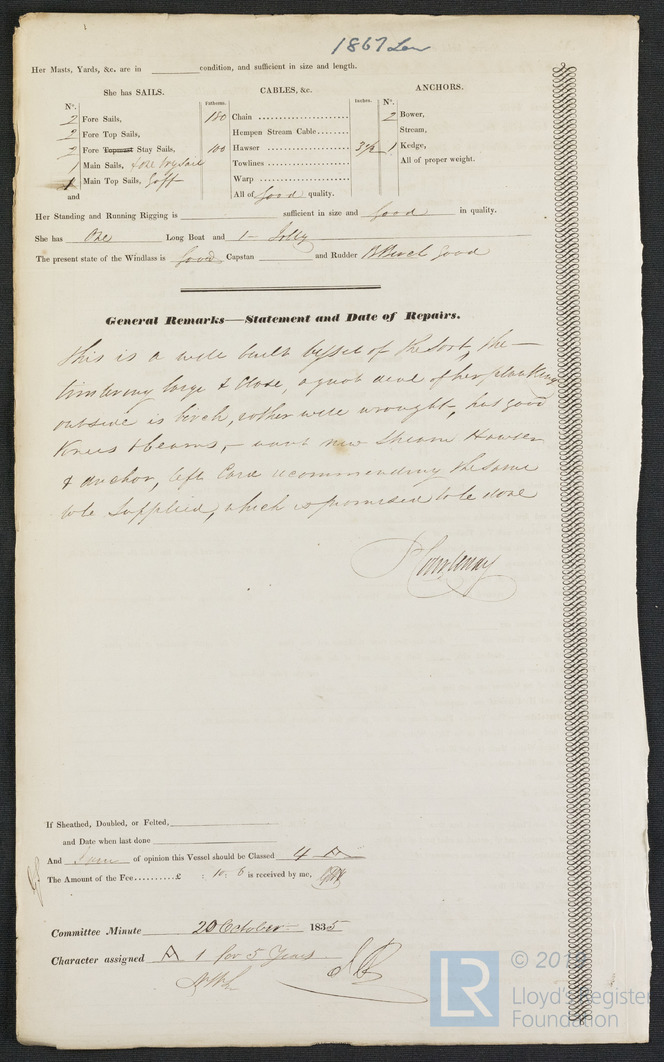 1867 Lon
Her Masts, Yards, &c. are in condition, and sufficient in size and length.
She has SAILS.
Nº.
2 Fore Sails,
2 Fore Top Sails,
2 Fore Topmast Stay Sails,
1 Main Sails,
1 Main Top Sails, Gaff
and
CABLES, &c.
Fathoms. Inches.
180 Chain
Hempen Stream Cable
100 Hawser
Towlines
Warp
All of Good quality.
ANCHORS.
Nº.
2 Bower,
Stream,
1 Kedge,
All of proper weight.
Her Standing and Running Rigging is sufficient in size and good in quality.
She has One Long Boat and 1 - Jolly
The present state of the Windlass is Good Capstan and Rudder Good
General Remarks—Statement and Date of Repairs.
This is a well built Vessel of the Sort, the
timbering large & Close, a great deal of her planking
outside is birch, wrought, has good
Knees & beams, - want new Stream Hawser
& anchor, left Card recommending the same
to be Supplied, which is promised to be done
If Sheathed, Doubled, or Felted,
and Date when last done
And I am of opinion this Vessel should be Classed 4 A
The Amount of the Fee..........£ : 10: 6 is received by me,
Committee Minute 20 October 1835
Character assigned A 1 for 5 Years
LR
Lloyd's Register
Foundation